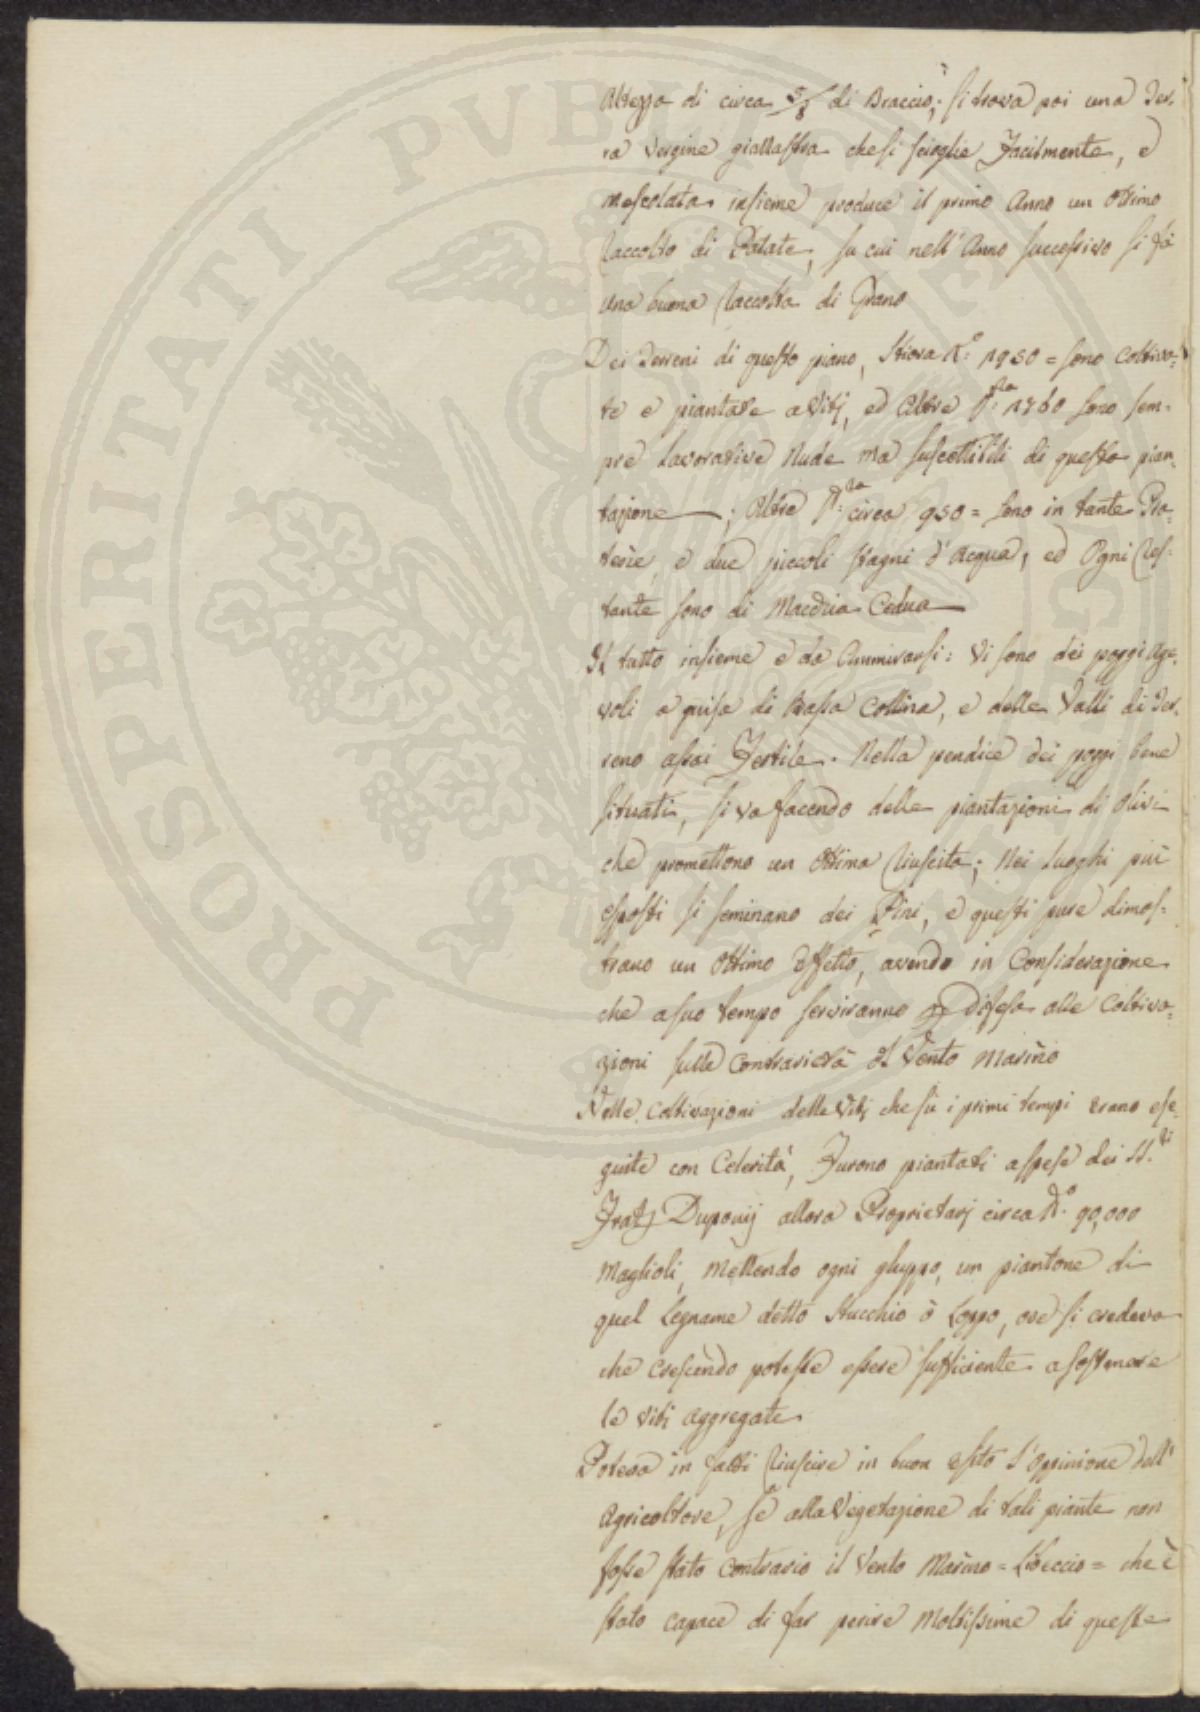 Altezza di circa 5/8 di Braccio; si trova poi una Ter-
ra Vergine giallastra che si scioglie Facilmente, e
mescolata insieme produce il primo Anno un Ottimo
Raccolto di Patate, su cui nell'Anno successivo si fà
una buona Raccolta di Grano
Dei Terreni di questo piano, Stiora N.º 1950 = sono coltiva=
te e piantate a Viti, ed Altre 1760 sono sem-
pre Lavorative Nude ma suscettibili di questa pian-
tazione; Altre circa 950 = sono in tante Pra-
terìe, e due piccoli stagni d'Acqua, ed Ogni res-
tante sono di Macchia Cedua
Il tutto insieme è da Ammirarsi: Vi sono dei poggi age-
voli a guisa di Bassa Collina, e delle Valli di Ter-
reno assai Fertile. Nella pendice dei poggi bene
situati, si va facendo delle piantazioni di Olivi
che promettono un Ottima Riuscita; Nei Luoghi più
esposti si seminano dei Pini, e questi pure dimos=
trano un Ottimo Effetto, avendo in Considerazione
che a suo tempo serviranno di difesa alle Coltiva=
zioni sulle Contrarietà del Vento Marino
Nelle Coltivazioni delle Viti che sù i primi tempi erano ese-
guite con Celerità, Furono piantati a spese dei SS.ri
Frat. Duponij allora Proprietarj circa N.º 90,000
Maglioli, Mettendo ogni gluppo, un piantone di
quel Legname detto Stucchio ò Loppo, ove si credeva
che Crescendo potesse essere sufficiente a sostenere
le Viti aggregate
Poteva in fatti Riuscire in buon esito l'Oppinione dell'
Agricoltore, se alla Vegetazione di tali piante non
fosse stato contrario il Vento Marino = Libeccio = che è
stato capace di far perire Moltissime di queste